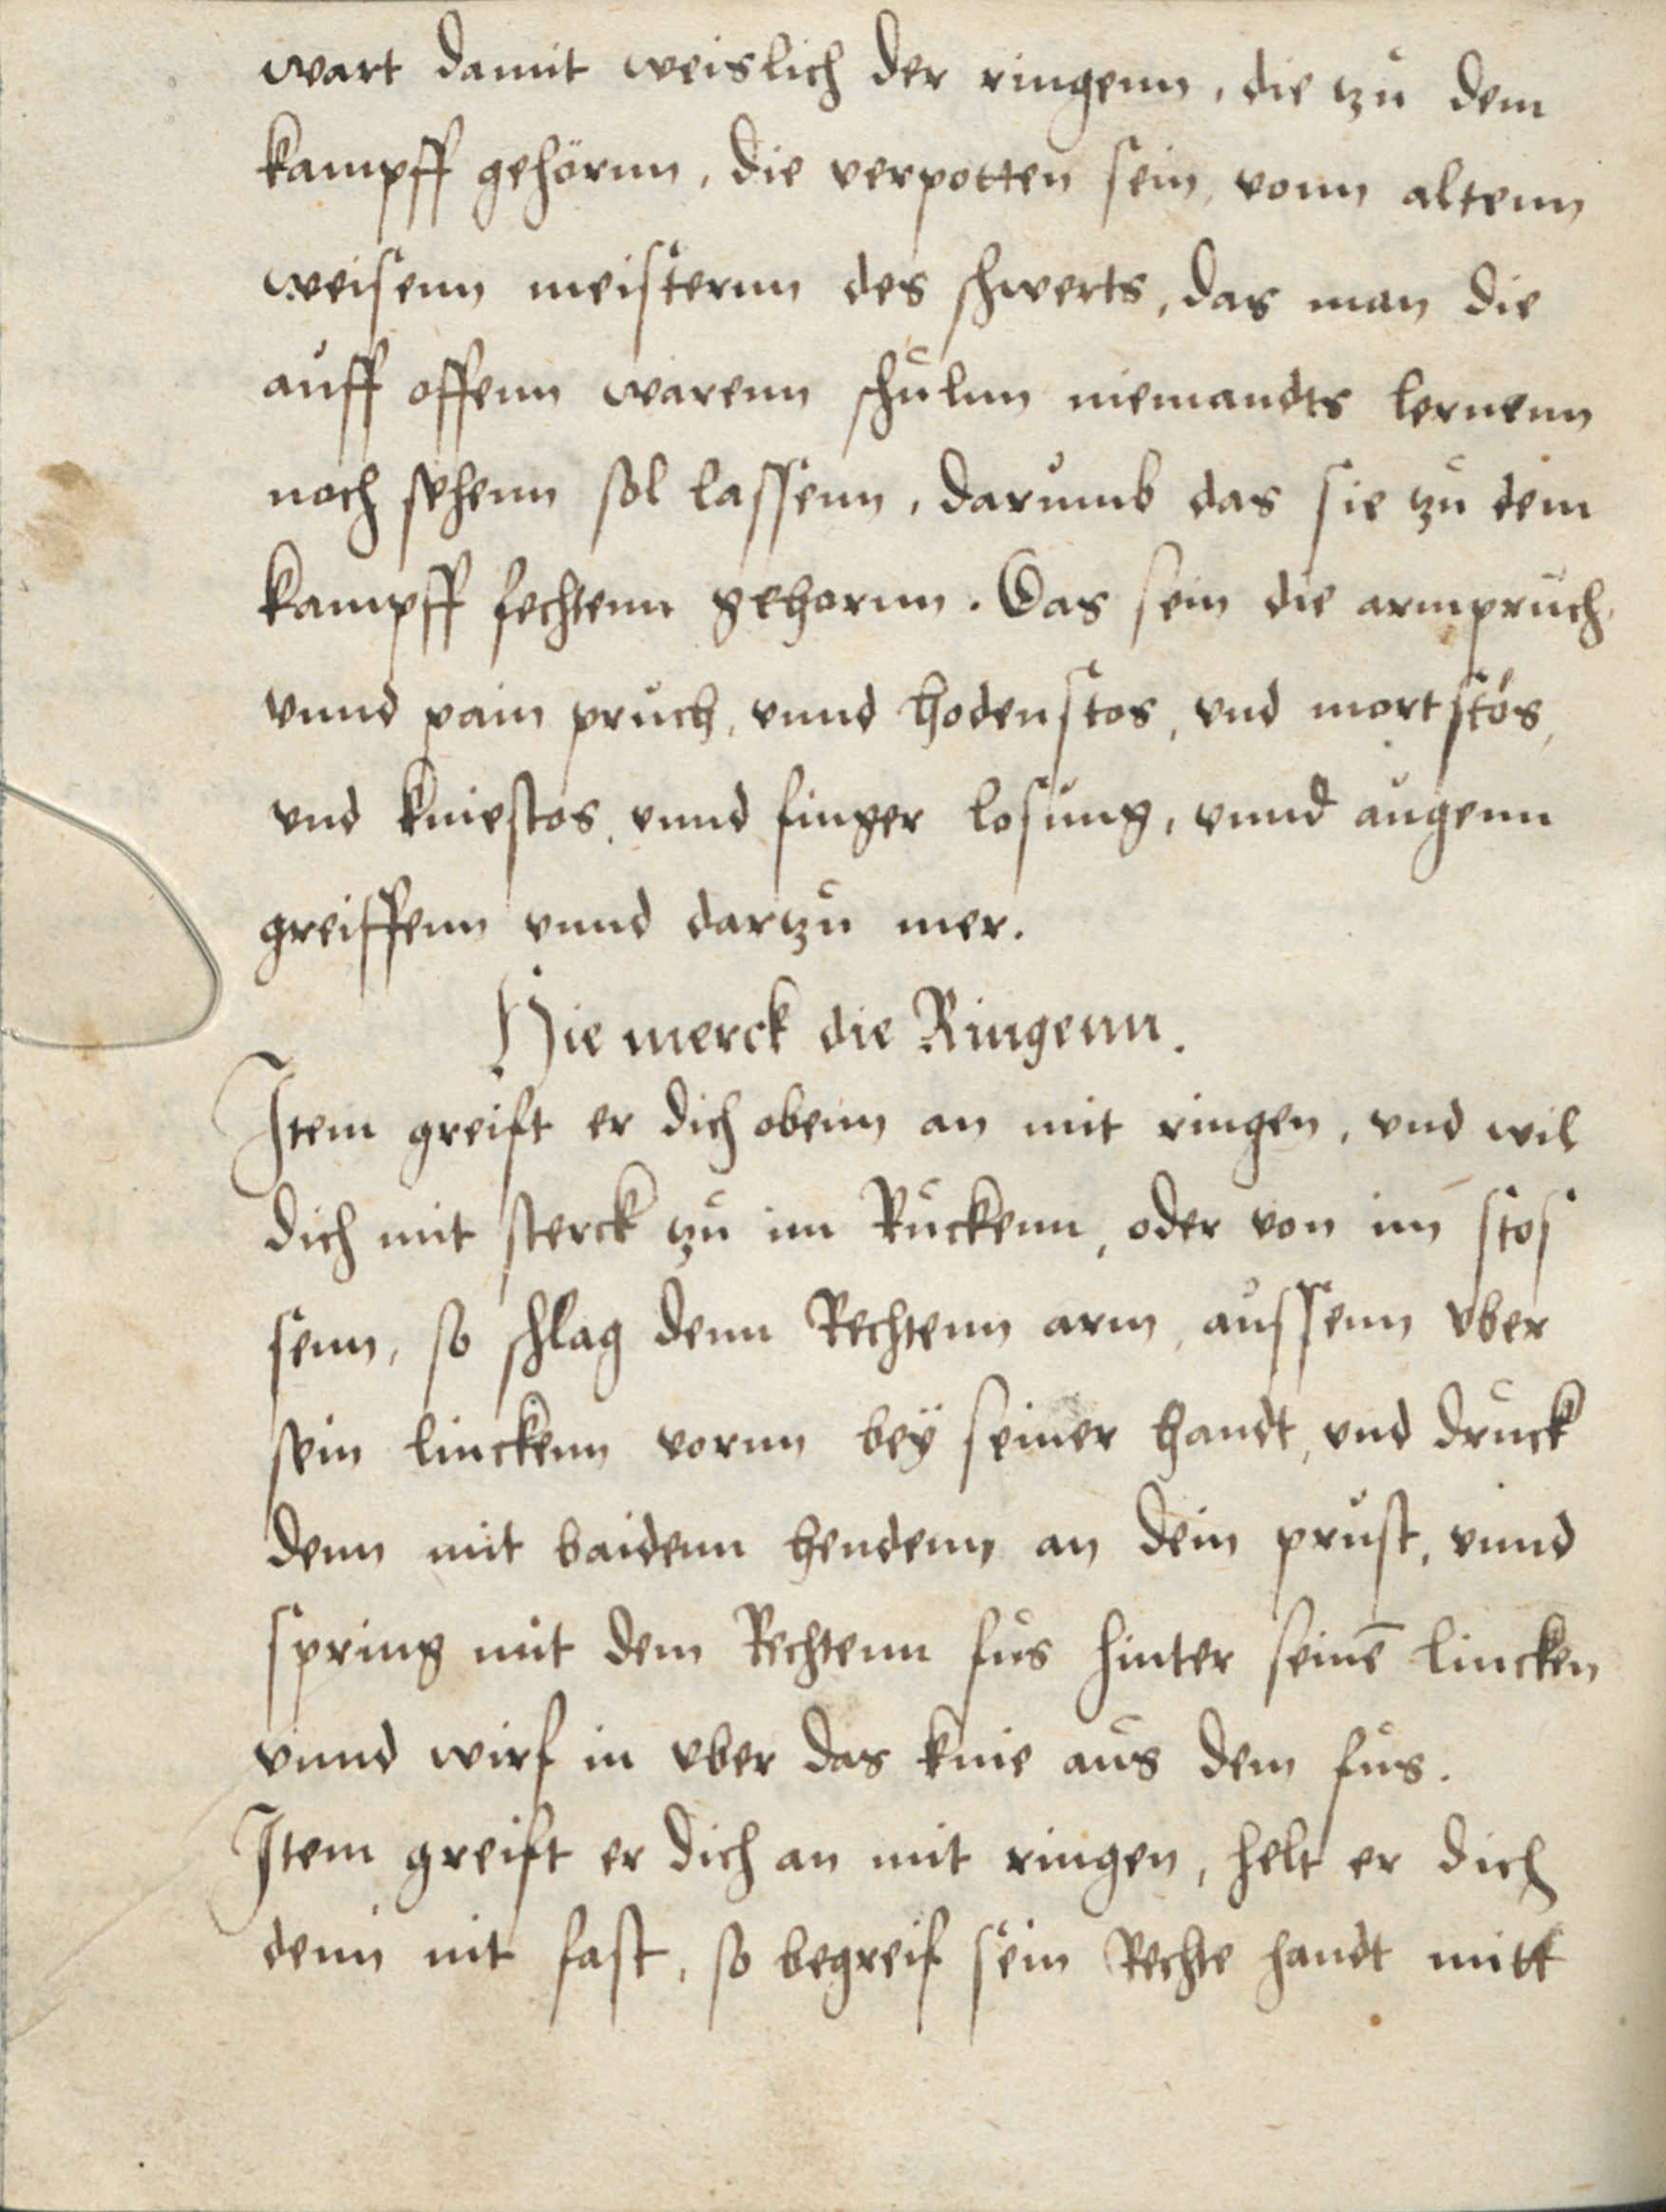 wart damit weislich der ringenn, die zu dem
kampff gehörnn, die verpotten sein, vonn altenn
weisenn meisternn des schwerts, das man die
auff offenn warenn schulnn niemandts lernenn
noch sehenn sol lassenn, darumb das sie zu dem
kampff fechtenn gehornn. Das sein die armpruch,
vnnd pain pruch, vnnd hodenstos, vnd mortstos,
vnd kniestos, vnnd finger losung, vnnd augenn
greiffenn vnnd darzu mer.
Hie merck die Ringenn.
Item greift er dich obenn an mit ringen, vnd wil
dich mit sterck zu im Ruckenn, oder von im stos
senn, so schlag denn Rechtenn arm, aussenn vber
sein linckenn vornn beÿ seiner handt, vnd druck
denn mit baidenn hendenn an dein prust, vnnd
spring mit dem Rechtenn fus hinter seinē lincken
vnnd wirf in vber das knie aus dem fus.
Item greift er dich an mit ringen, helt er dich
denn nit fast, so begreif sein Rechte handt mitt